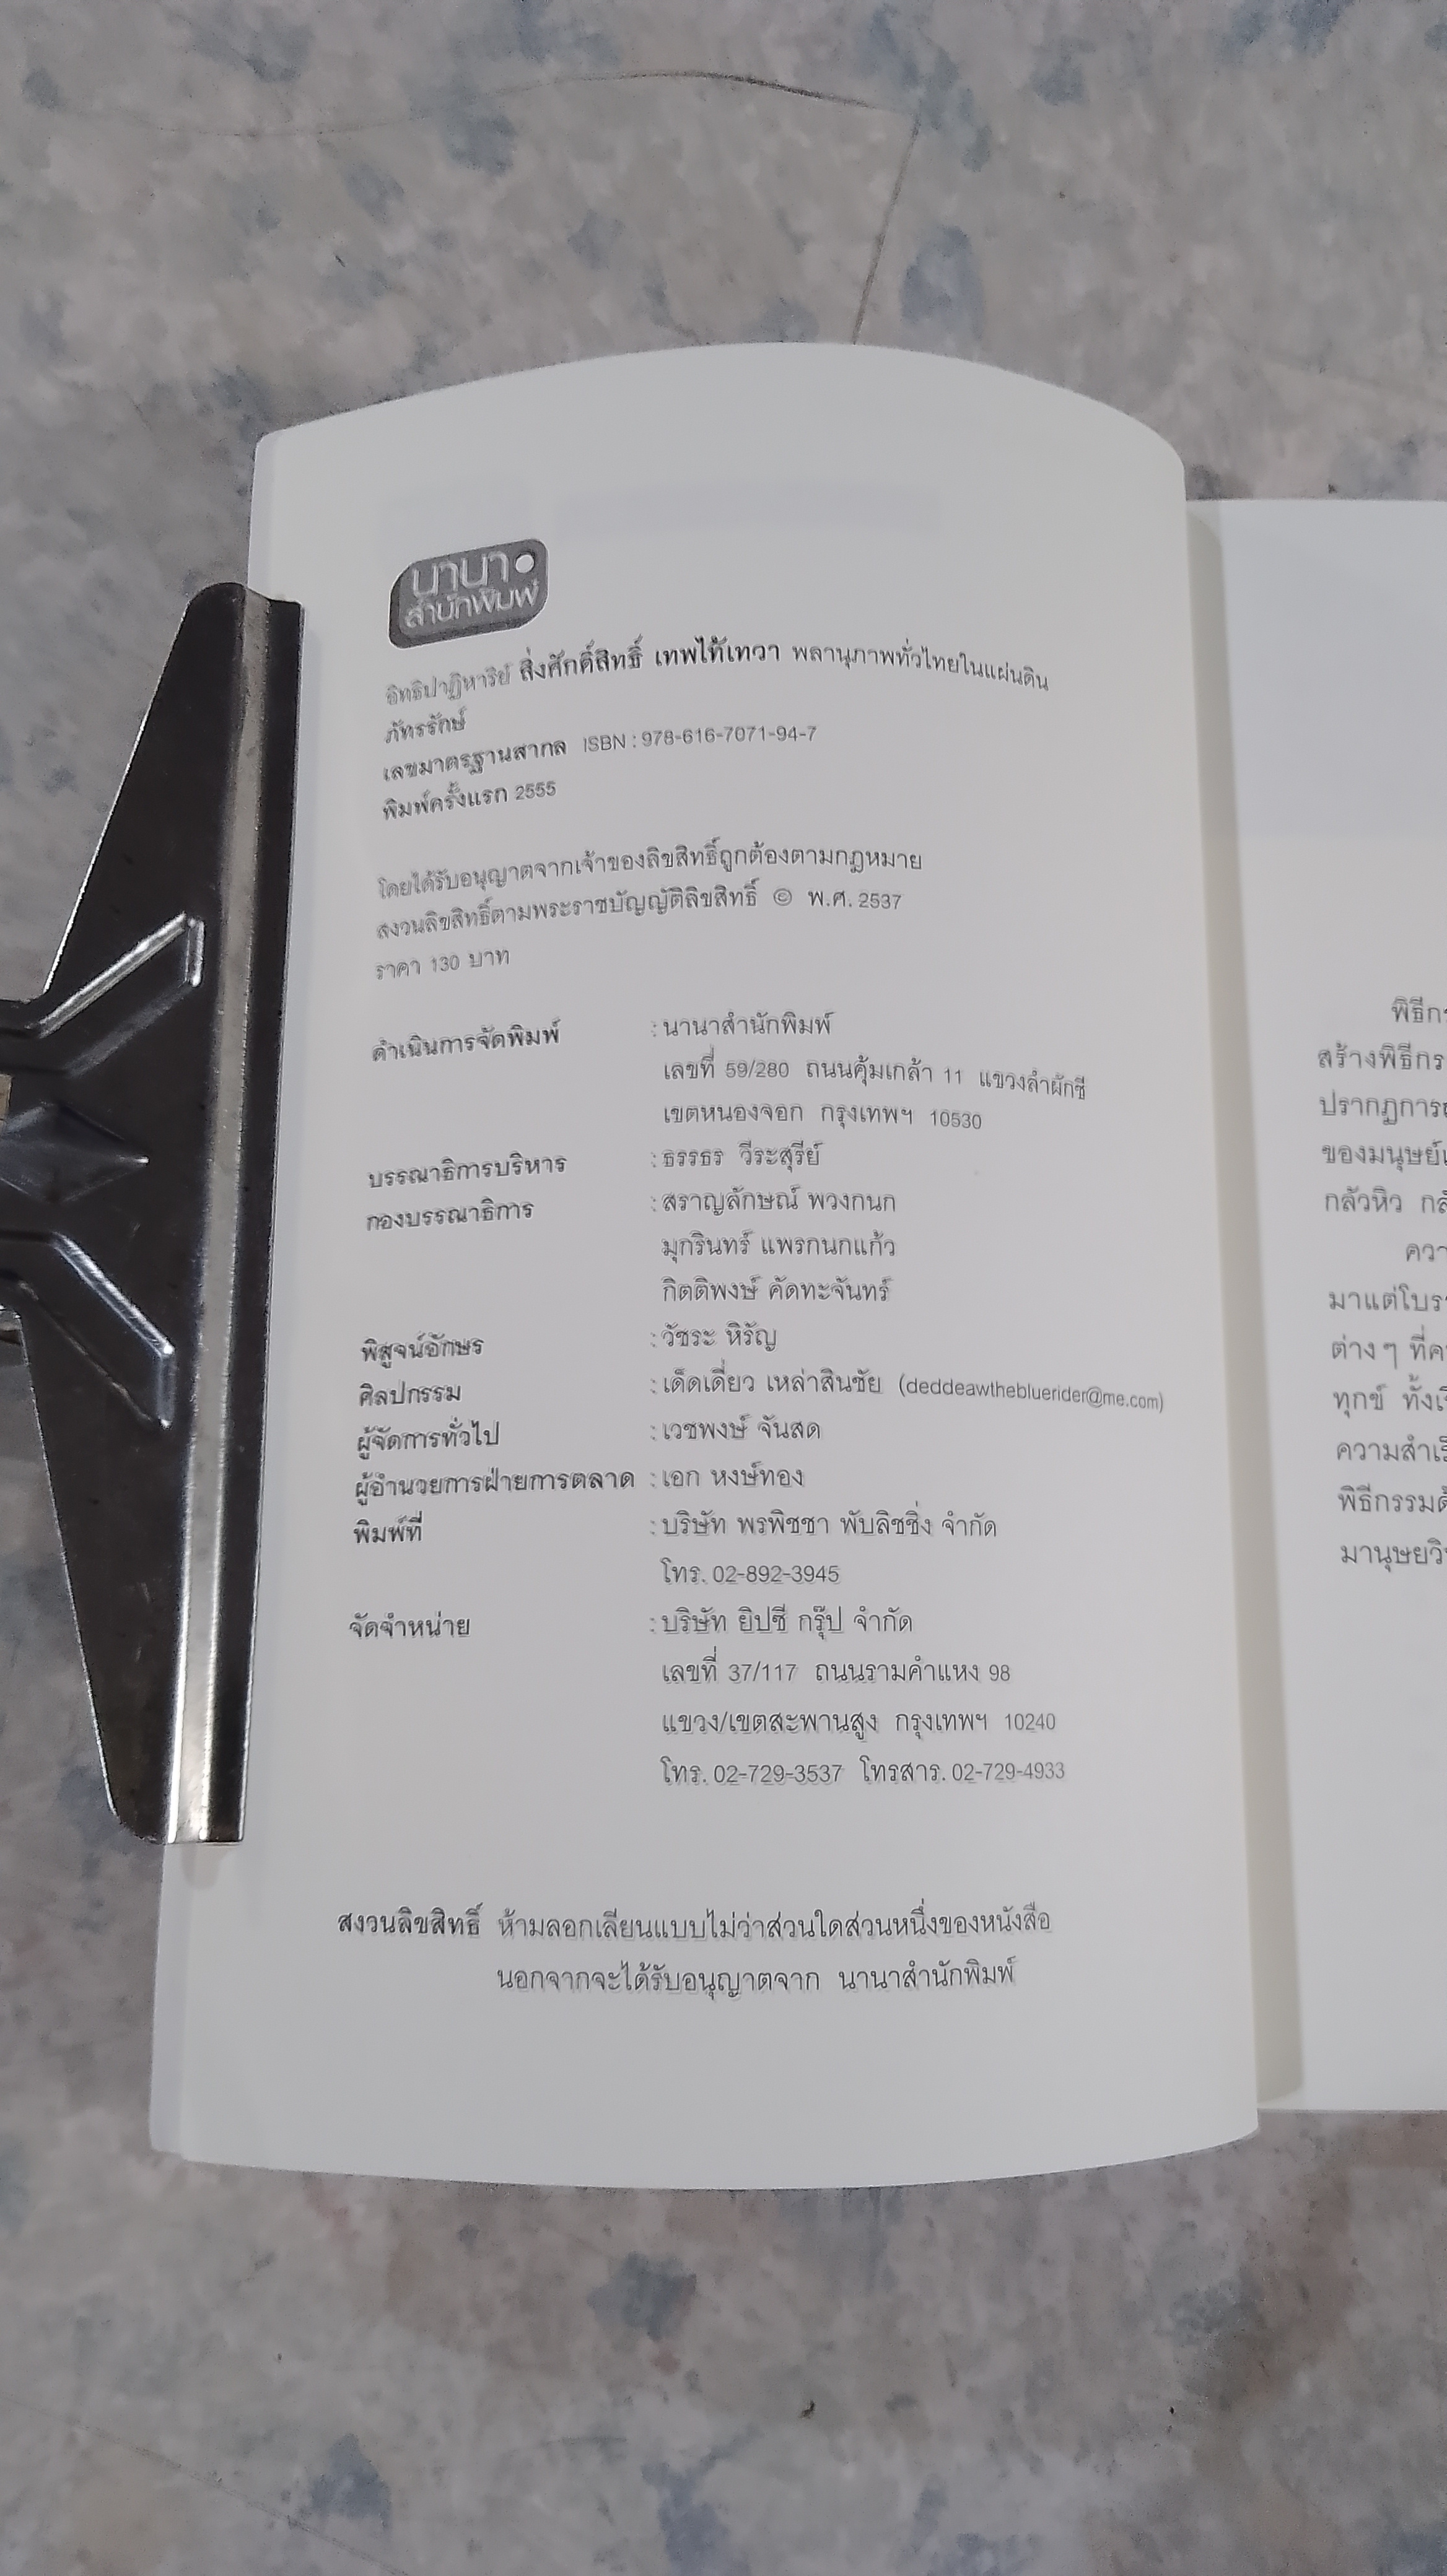 นานา
สำนักพิมพ์
อิทธิปาฏิหาริย์ สิ่งศักดิ์สิทธิ์ เทพไท้เทวา พลานุภาพทั่วไทยในแผ่นดิน
ภัทรรักษ์
เลขมาตรฐานสากล ISBN : 978-616-7071-94-7
พิมพ์ครั้งแรก 2555
โดยได้รับอนุญาตจากเจ้าของลิขสิทธิ์ถูกต้องตามกฎหมาย
สงวนลิขสิทธิ์ตามพระราชบัญญัติลิขสิทธิ์ © พ.ศ. 2537
ราคา 130 บาท
ดำเนินการจัดพิมพ์ : นานาสำนักพิมพ์
เลขที่ 59/280 ถนนคุ้มเกล้า 11 แขวงลำผักชี
เขตหนองจอก กรุงเทพฯ 10530
บรรณาธิการบริหาร : ธรรธร วีระสุรีย์
กองบรรณาธิการ : สราญลักษณ์ พวงกนก
มุกรินทร์ แพรกนกแก้ว
กิตติพงษ์ คัดทะจันทร์
พิสูจน์อักษร : วัชระ หิรัญ
ศิลปกรรม : เด็ดเดี่ยว เหล่าสินชัย (deddeawthebluerider@me.com)
ผู้จัดการทั่วไป : เวชพงษ์ จันสด
ผู้อำนวยการฝ่ายการตลาด : เอก หงษ์ทอง
พิมพ์ที่ : บริษัท พรพิชชา พับลิชชิ่ง จำกัด
โทร. 02-892-3945
จัดจำหน่าย : บริษัท ยิปซี กรุ๊ป จำกัด
เลขที่ 37/117 ถนนรามคำแหง 98
แขวง/เขตสะพานสูง กรุงเทพฯ 10240
โทร. 02-729-3537 โทรสาร. 02-729-4933
สงวนลิขสิทธิ์ ห้ามลอกเลียนแบบไม่ว่าส่วนใดส่วนหนึ่งของหนังสือ
นอกจากจะได้รับอนุญาตจาก นานาสำนักพิมพ์
ของมนุษย์
กลัวหิว
ต่างๆ
ทุกข์